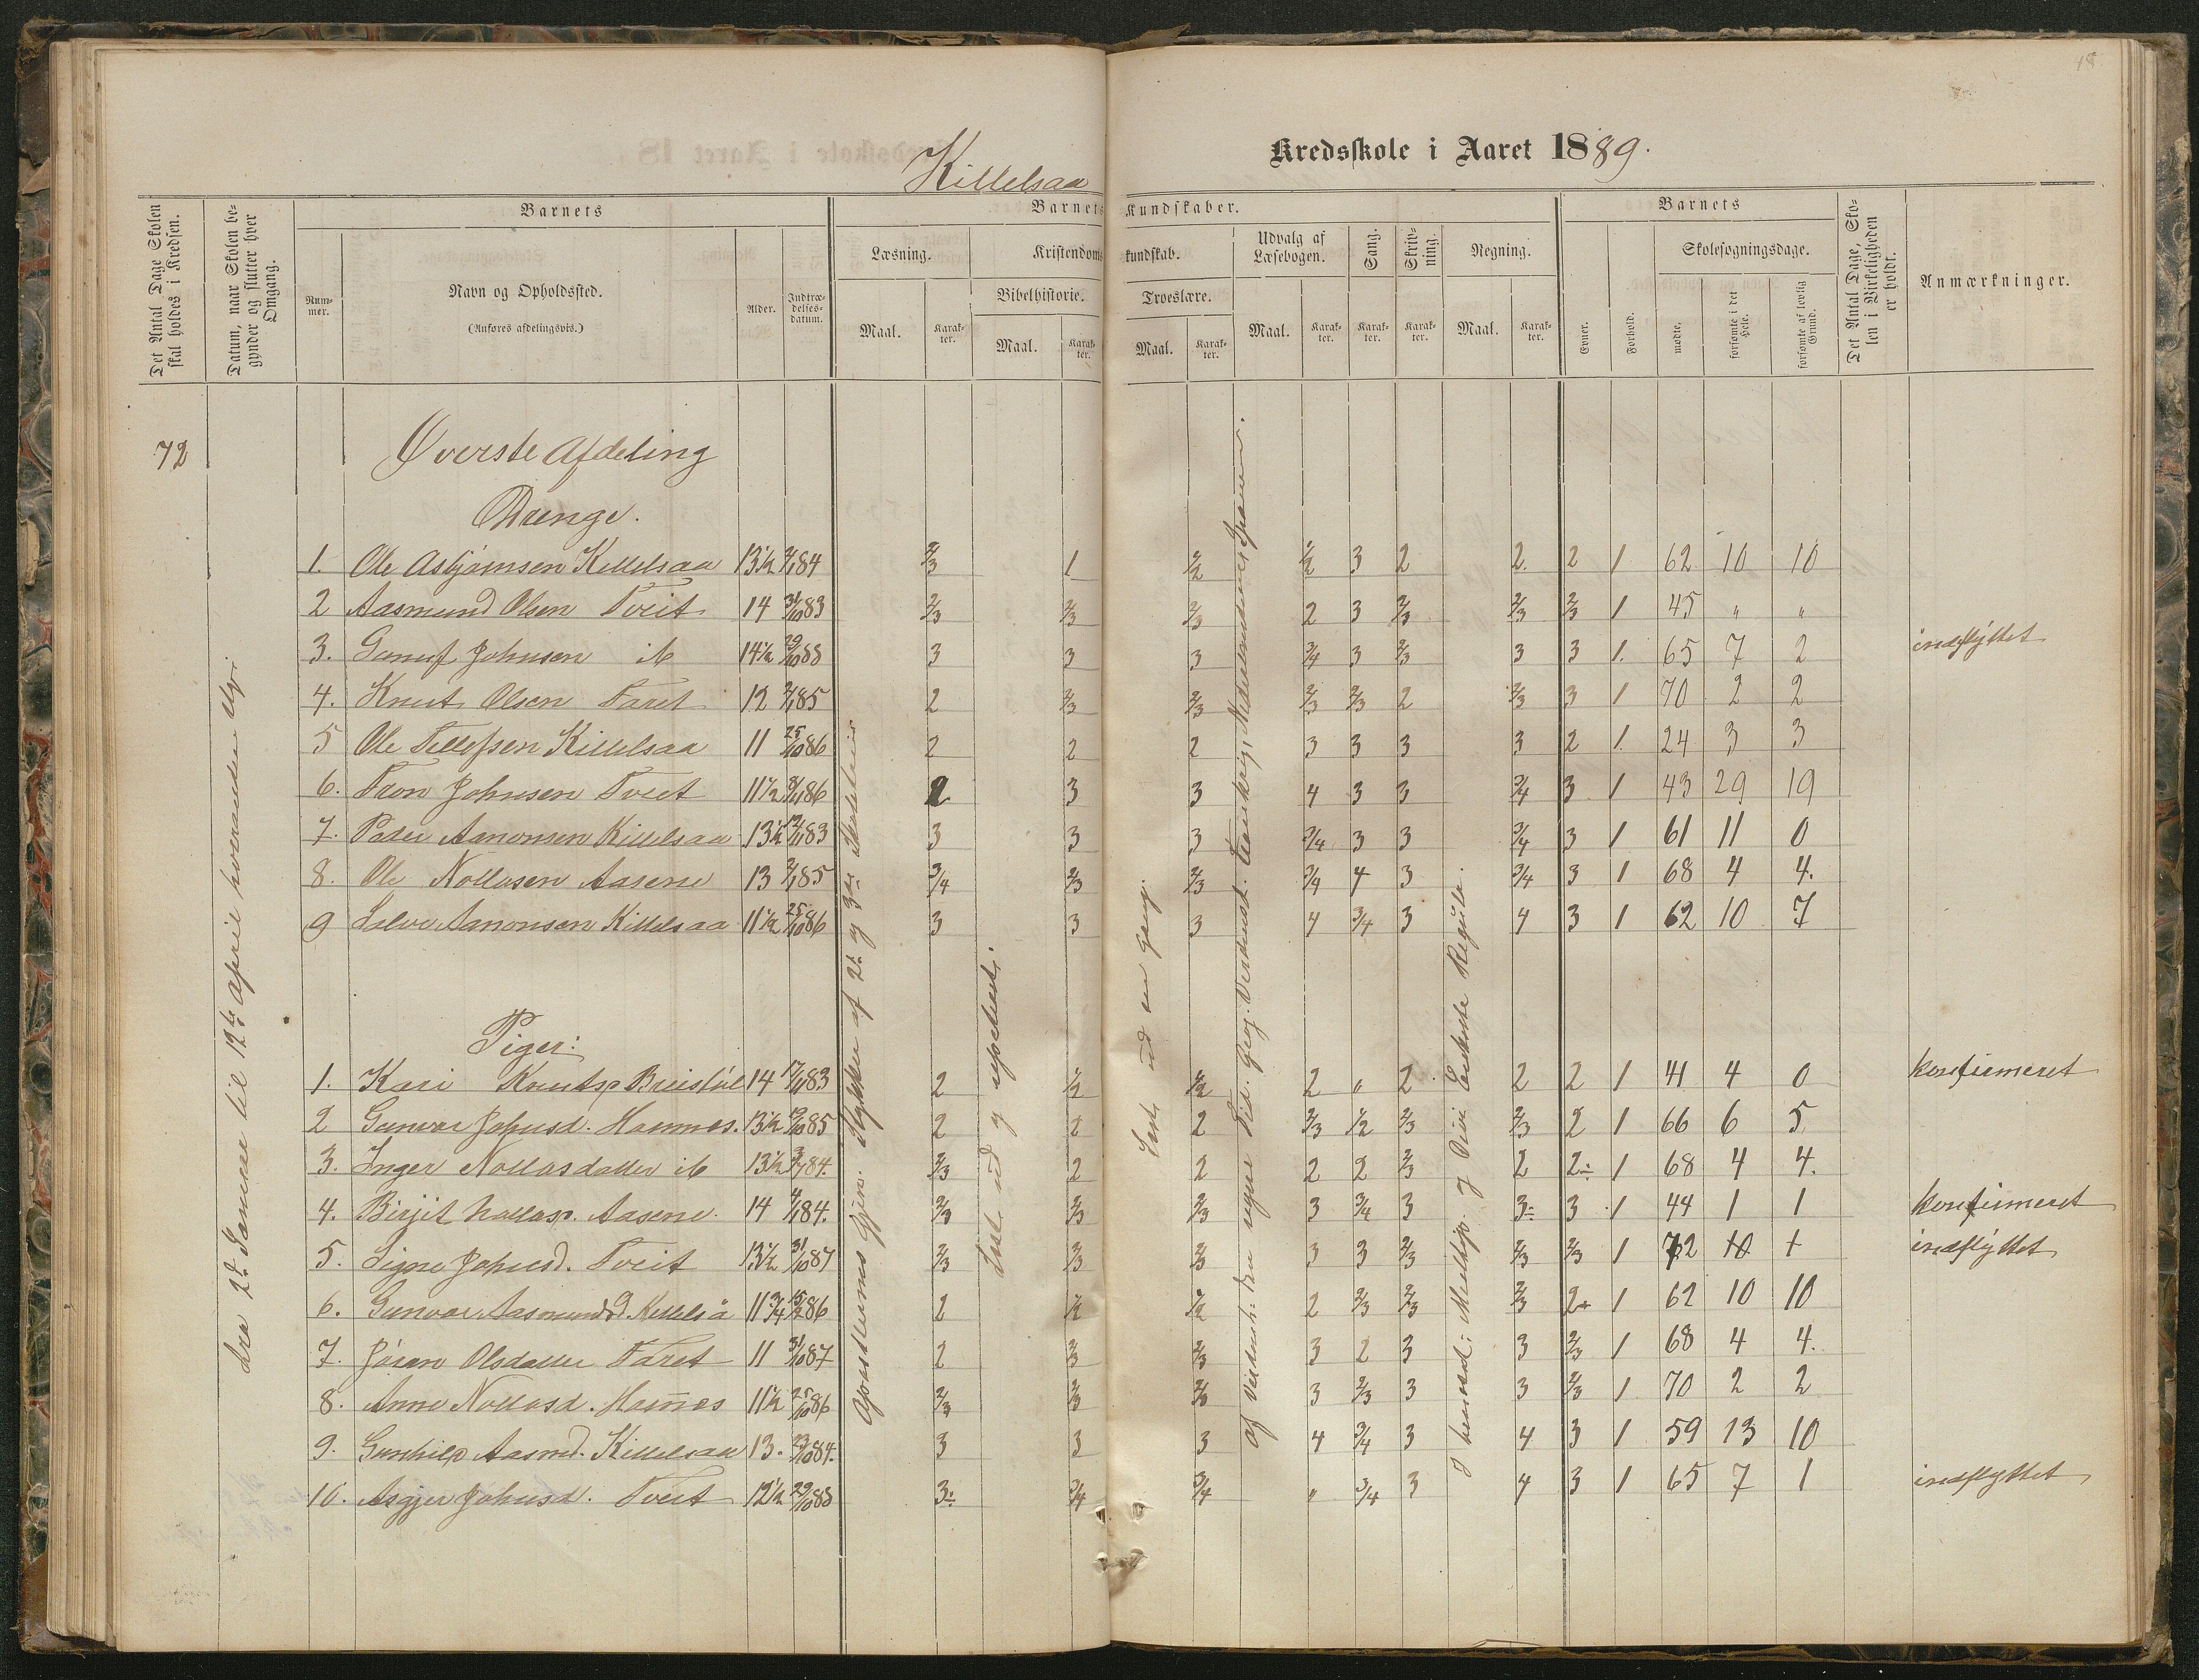 18
Killelsaa Kredsskole i Aaret 1889.
Det Antal Dage Skolen skal holdes i Kredsen.
Datum, naar Skolen begynder og slutter hver Omgang.
Barnets
Nummer.
Navn og Opholdssted.
(Anføres afdelingsvis.)
Alder.
Indtrædelsesdatum.
Barnets Kundskaber.
Læsning.
Maal.
Karakter.
Kristendomskundskab.
Bibelhistorie.
Maal.
Karakter.
Troeslære.
Maal.
Karakter.
Udvalg af Læsebogen.
Maal.
Karakter.
Sang.
Karakter.
Skrivning.
Karakter.
Regning.
Maal.
Karakter.
Barnets
Evner.
Forhold.
Skolesøgningsdage.
mødte.
forsømte i det Hele.
forsømte af lovlig Grund.
Det Antal Dage, Skolen i Virkeligheden er holdt.
Anmærkninger.
72
Øverste Afdeling
Drenge.
1. Ole Asbjørnsen Killelsaa 13½ 84 2/3 1 1/2 1/2 3 2 2. 2 1 62 10 10
2 Aasmund Olsen Tveit 14 31/10 83 2/3 2/3 2/3 2 3 2/3 2/3 2/3 1 45 " "
3. Gunuf Johnsen ib 14½ 29/10 88 3 3 3 3/4 3 2/3 3 3 1. 65 7 2 indflyttet
4. Knut Olsen Faret 12 85 2 2/3 2/3 2/3 2/3 2 2/3 3 1 70 2 2
5 Ole Tellefsen Killelsaa 11 25/10 86 2 2 2 3 3 3 3 2 1. 24 3 3
6. Tron Johnsen Tveit 11½ 86 2 3 3 4 3 3 3/4 3 1 43 29 19
7. Peder Aanonsen Killelsaa 13½ 83 3 3 3 3/4 3 3 3/4 3 1 61 11 0
8. Ole Nollasen Aasene 13 85 3/4 2/3 2/3 3/4 4 3 3/4 3 1 68 4 4.
9 Salve Aanonsen Killelsaa 11½ 25/10 86 3 3 3 4 3/4 3 4 3 1 62 10 7
Piger:
1. Kari Knutsp Breistøl 14 17/11 83 2 1/2 1/2 2 " 2 2 2 1 41 4 0 konfirmeret
2 Gunvor Johnsd. Hamnes. 13½ 19/10 85 2 2 2 2/3 1/2 2/3 2/3 2 1 66 6 5
3. Inger Nollasdatter ib 13½ 84 2/3 2 2 2 2 2/3 2 2÷ 1 68 4 4.
4. Birjit Nollasp. Aasene 14 84. 2/3 2/3 2/3 3 3/4 3 3÷ 3 1 44 1 1 konfirmeret
5. Signe Johnsd. Tveit 13½ 31/10 87 2/3 2/3 2/3 3 3 2/3 2/3 2/3 1 72 indflyttet
6. Gunvor Aasmundsd. Killelså 11¾ 15/2 86 2 1/2 1/2 2 2/3 2/3 2/3 2+ 1 62 10 10
7. Jøran Olsdatter Faret 11 31/10 87 2 2/3 2/3 3 2 3 3 2/3 1 68 4 4.
8. Anne Nollasd. Hamnes 11½ 25/10 86 2/3 2/3 2/3 3 2/3 3 3 2/3 1 70 2 2
9. Gunhild Aasmd. Killelsaa 13. 23/10 84. 3 3 3 4 3/4 3 4 3 1 59 13 10
10. Asgjer Johnsd. Tveit 12½ 29/10 88 3÷ 3/4 3/4 " 3/4 3 4 3 1 65 7 1 indflyttet
fra 2d Januar til 12te April hveranden Uge.
Apostlernes Gjern. Stykker af 2d og 3die
Læst ud og repeteret.
Læst ud en gang.
I hovedr: Multipl. I Divi Enkelte Regula.